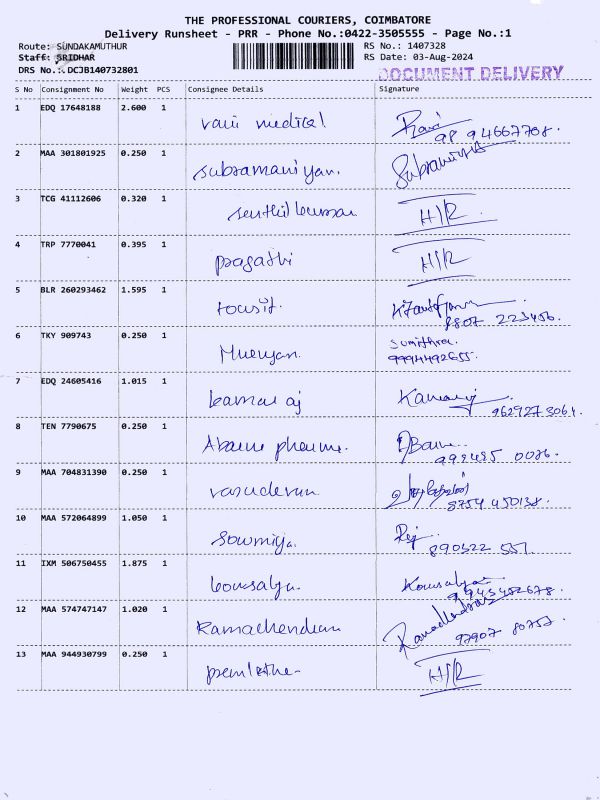 THE PROFESSIONAL COURIERS, COIMBATORE
Delivery Runsheet - PRR - Phone No.:0422-3505555 - Page No.:1
Route: SUNDAKAMUTHUR RS No.: 1407328
Staff: SRIDHAR RS Date: 03-Aug-2024
DRS No.: DCJB140732801 DOCUMENT DELIVERY
S No Consignment No Weight PCS Consignee Details Signature
1 EDQ 17648188 2.600 1 vani medical Ravi
2 MAA 301801925 0.250 1 subramaniyan. Subramaniyan
3 TCG 41112606 0.320 1 senthil kumar H/R
4 TRP 7770041 0.395 1 pragathi H/R
5 BLR 260293462 1.595 1 tousif.
8807 223456.
6 TKY 909743 0.250 1 sumithra.
9994492655.
7 EDQ 24605416 1.015 1 kamaraj Kamaraj
962927 3061.
8 TEN 7790675 0.250 1
9 MAA 704831390 0.250 1 vasudevan
8754 450138.
10 MAA 572064899 1.050 1 Sowmiya.
890322 557
11 IXM 506750455 1.875 1 kousalya Kousalya
9943452678.
12 MAA 574747147 1.020 1 Ramachendran Ramachendran
97907 80757
13 MAA 944930799 0.250 1 premlatha H/R